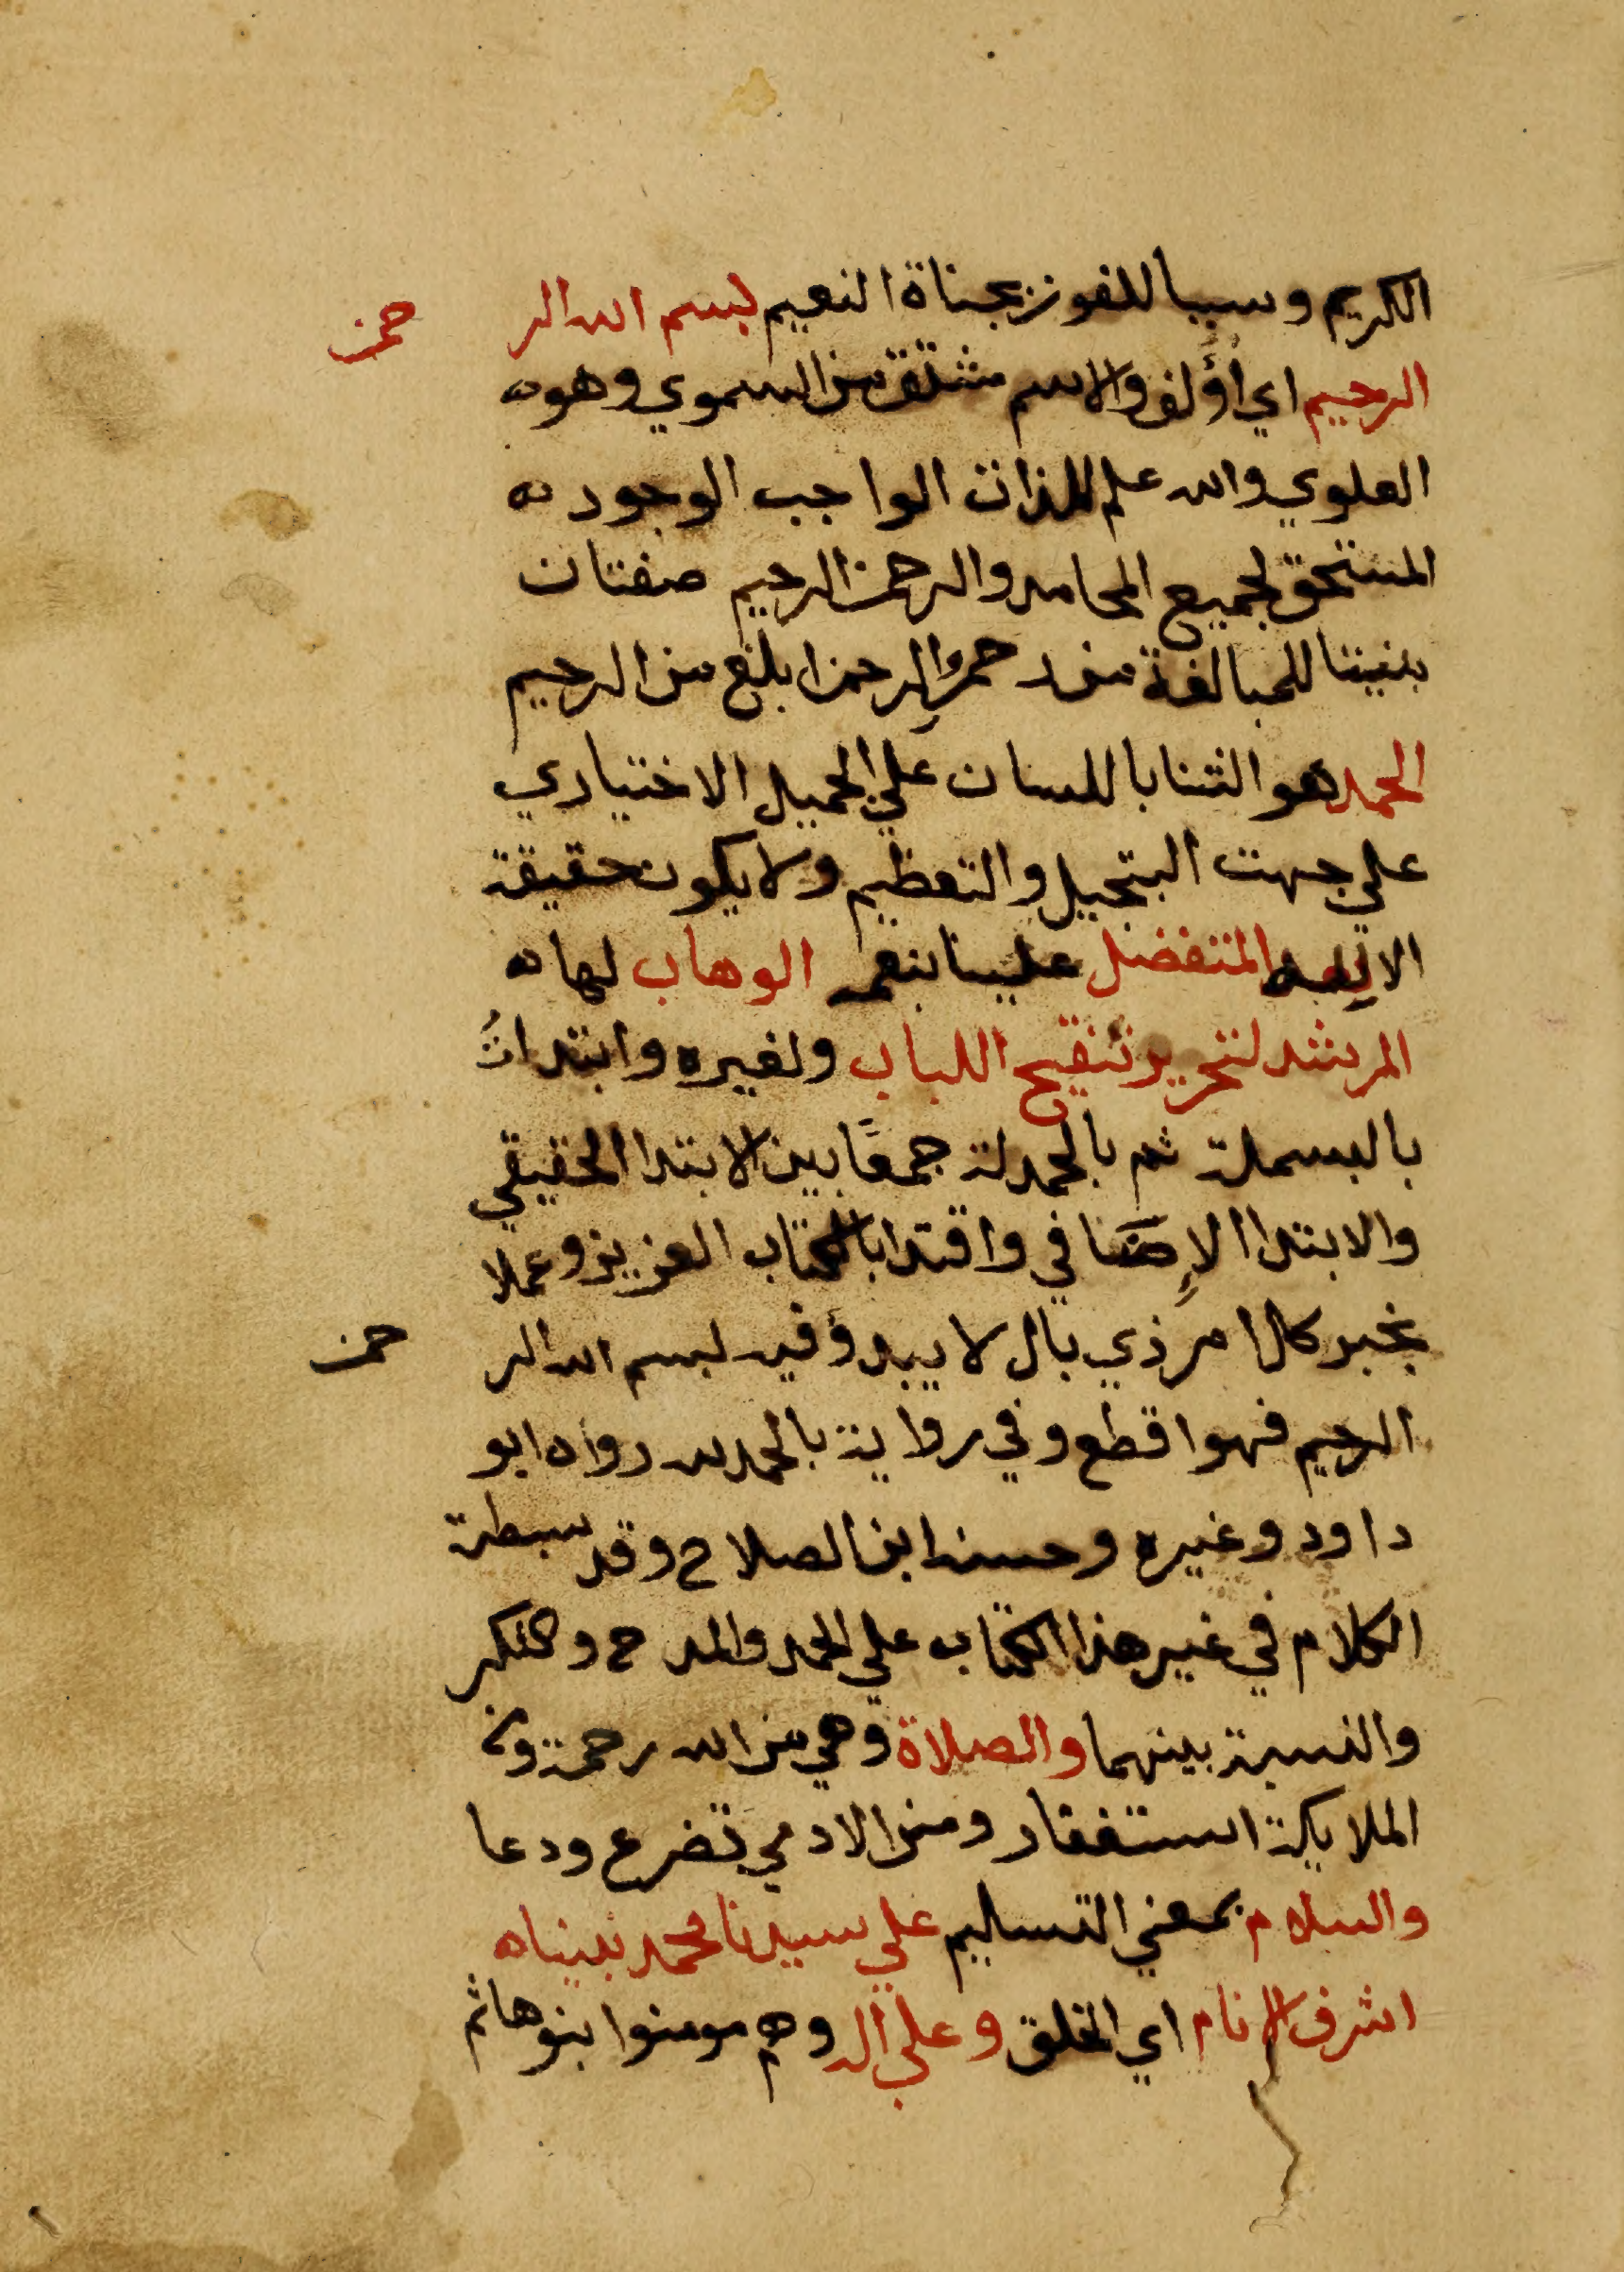 الكريم وسببا للفوز بجناة النعيم بسم الله الرحمن
الرحيم اي اؤلف والاسم مشتق من السموي وهو
العلوي والله علم للذات الواجب الوجود
المستحق لجميع المحامد والرحمن الرحيم صفتان
بنيتا للمبالغة من رحم والرحمن ابلغ من الرحيم
الحمد هو الثنا باللسان علي الجميل الاختياري
علي جهت التبجيل والتعظيم ولا يكون حقيقة
الا لله المتفضل علينا بنعمه الوهاب لها
المرشد لتحرير تنقيح اللباب ولغيره وابتدات
بالبسملة ثم بالحمدلة جمعًا بين الابتدا الحقيقي
والابتدا الإضافي واقتدا بالكتاب العزيز وعملا
بخبر كل امر ذي بال لا يبدؤ فيه ببسم الله الرحمن
الرحيم فهو اقطع وفي رواية بالحمد لله رواه ابو
داود وغيره وحسنه ابن الصلاح وقد بسطة
الكلام في غير هذا الكتاب علي الحمد والمدح والشكر
والنسبة بينهما والصلاة وهي من الله رحمة ومن
الملايكة استغفار ومن الادمي تضرع ودعا
والسلام بمعني التسليم علي سيدنا محمد نبينا
اشرف الانام اي الخلق وعلي اله وهم مومنوا بنو هاشم